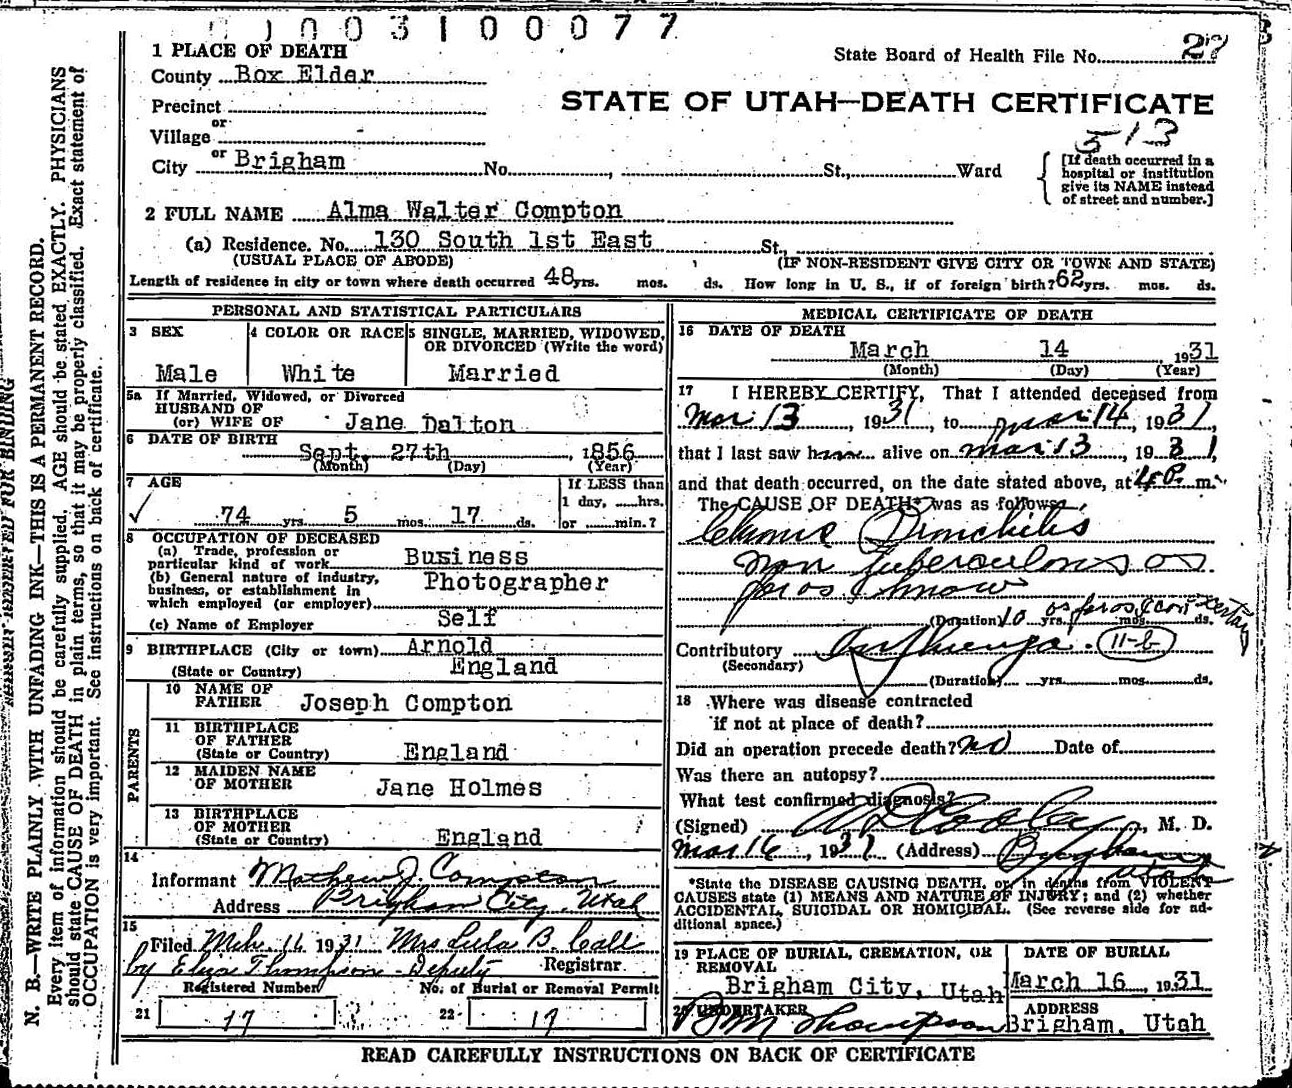 1003100077
1 PLACE OF DEATH
State Board of Health File No. 27
County Box Elder
STATE OF UTAH—DEATH CERTIFICATE
Precinct
or
Village
513
or
City Brigham No. , St., Ward
[If death occurred in a hospital or institution give its NAME instead of street and number.]
2 FULL NAME Alma Walter Compton
(a) Residence. No. 130 South 1st East St.,
(USUAL PLACE OF ABODE) (IF NON-RESIDENT GIVE CITY OR TOWN AND STATE)
Length of residence in city or town where death occurred 48 yrs. mos. ds. How long in U. S., if of foreign birth? 62 yrs. mos. ds.
PERSONAL AND STATISTICAL PARTICULARS
3 SEX
Male
4 COLOR OR RACE
White
5 SINGLE, MARRIED, WIDOWED, OR DIVORCED (Write the word)
Married
5a If Married, Widowed, or Divorced
HUSBAND OF
(or) WIFE OF Jane Dalton
6 DATE OF BIRTH
Sept. 27th , 1856
(Month) (Day) (Year)
7 AGE
74 yrs. 5 mos. 17 ds.
If LESS than
1 day, hrs.
or min.?
8 OCCUPATION OF DECEASED
(a) Trade, profession or
particular kind of work Business
(b) General nature of industry,
business, or establishment in
which employed (or employer) Photographer
(c) Name of Employer Self
9 BIRTHPLACE (City or town) Arnold
(State or Country) England
PARENTS
10 NAME OF
FATHER Joseph Compton
11 BIRTHPLACE
OF FATHER
(State or Country) England
12 MAIDEN NAME
OF MOTHER Jane Holmes
13 BIRTHPLACE
OF MOTHER
(State or Country) England
14
Informant Mathew J. Compton
Address Brigham City, Utah
15
Filed Mch. 16 1931 Mrs Lula B. Call
by Eliza Thompson - Deputy Registrar
Registered Number No. of Burial or Removal Permit
21 17 22 17
MEDICAL CERTIFICATE OF DEATH
16 DATE OF DEATH
March 14 1931
(Month) (Day) (Year)
17 I HEREBY CERTIFY, That I attended deceased from
Mar 13, 1931, to Mar 14, 1931,
that I last saw him alive on Mar 13, 1931,
and that death occurred, on the date stated above, at 4 P. m.
The CAUSE OF DEATH* was as follows:
Chronic Bronchitis
Non Tuberculous as
far as I know
(Duration) 10 yrs. mos. ds.
as far as I can
Contributory Influenza. 11-b
(Secondary)
(Duration) yrs. mos. ds.
18 Where was disease contracted
if not at place of death?
Did an operation precede death? no Date of
Was there an autopsy?
What test confirmed diagnosis?
(Signed) , M. D.
Mar 16, 1931 (Address) Brigham Utah
*State the DISEASE CAUSING DEATH, or, in deaths from VIOLENT
CAUSES state (1) MEANS AND NATURE OF INJURY; and (2) whether
ACCIDENTAL, SUICIDAL OR HOMICIDAL. (See reverse side for ad-
ditional space.)
19 PLACE OF BURIAL, CREMATION, OR REMOVAL
Brigham City, Utah
DATE OF BURIAL
March 16, 1931
20 UNDERTAKER
Thompson
ADDRESS
Brigham, Utah
READ CAREFULLY INSTRUCTIONS ON BACK OF CERTIFICATE
MARGIN RESERVED FOR BINDING
N. B.—WRITE PLAINLY WITH UNFADING INK—THIS IS A PERMANENT RECORD.
Every item of information should be carefully supplied. AGE should be stated EXACTLY. PHYSICIANS
should state CAUSE OF DEATH in plain terms, so that it may be properly classified. Exact statement of
OCCUPATION is very important. See instructions on back of certificate.